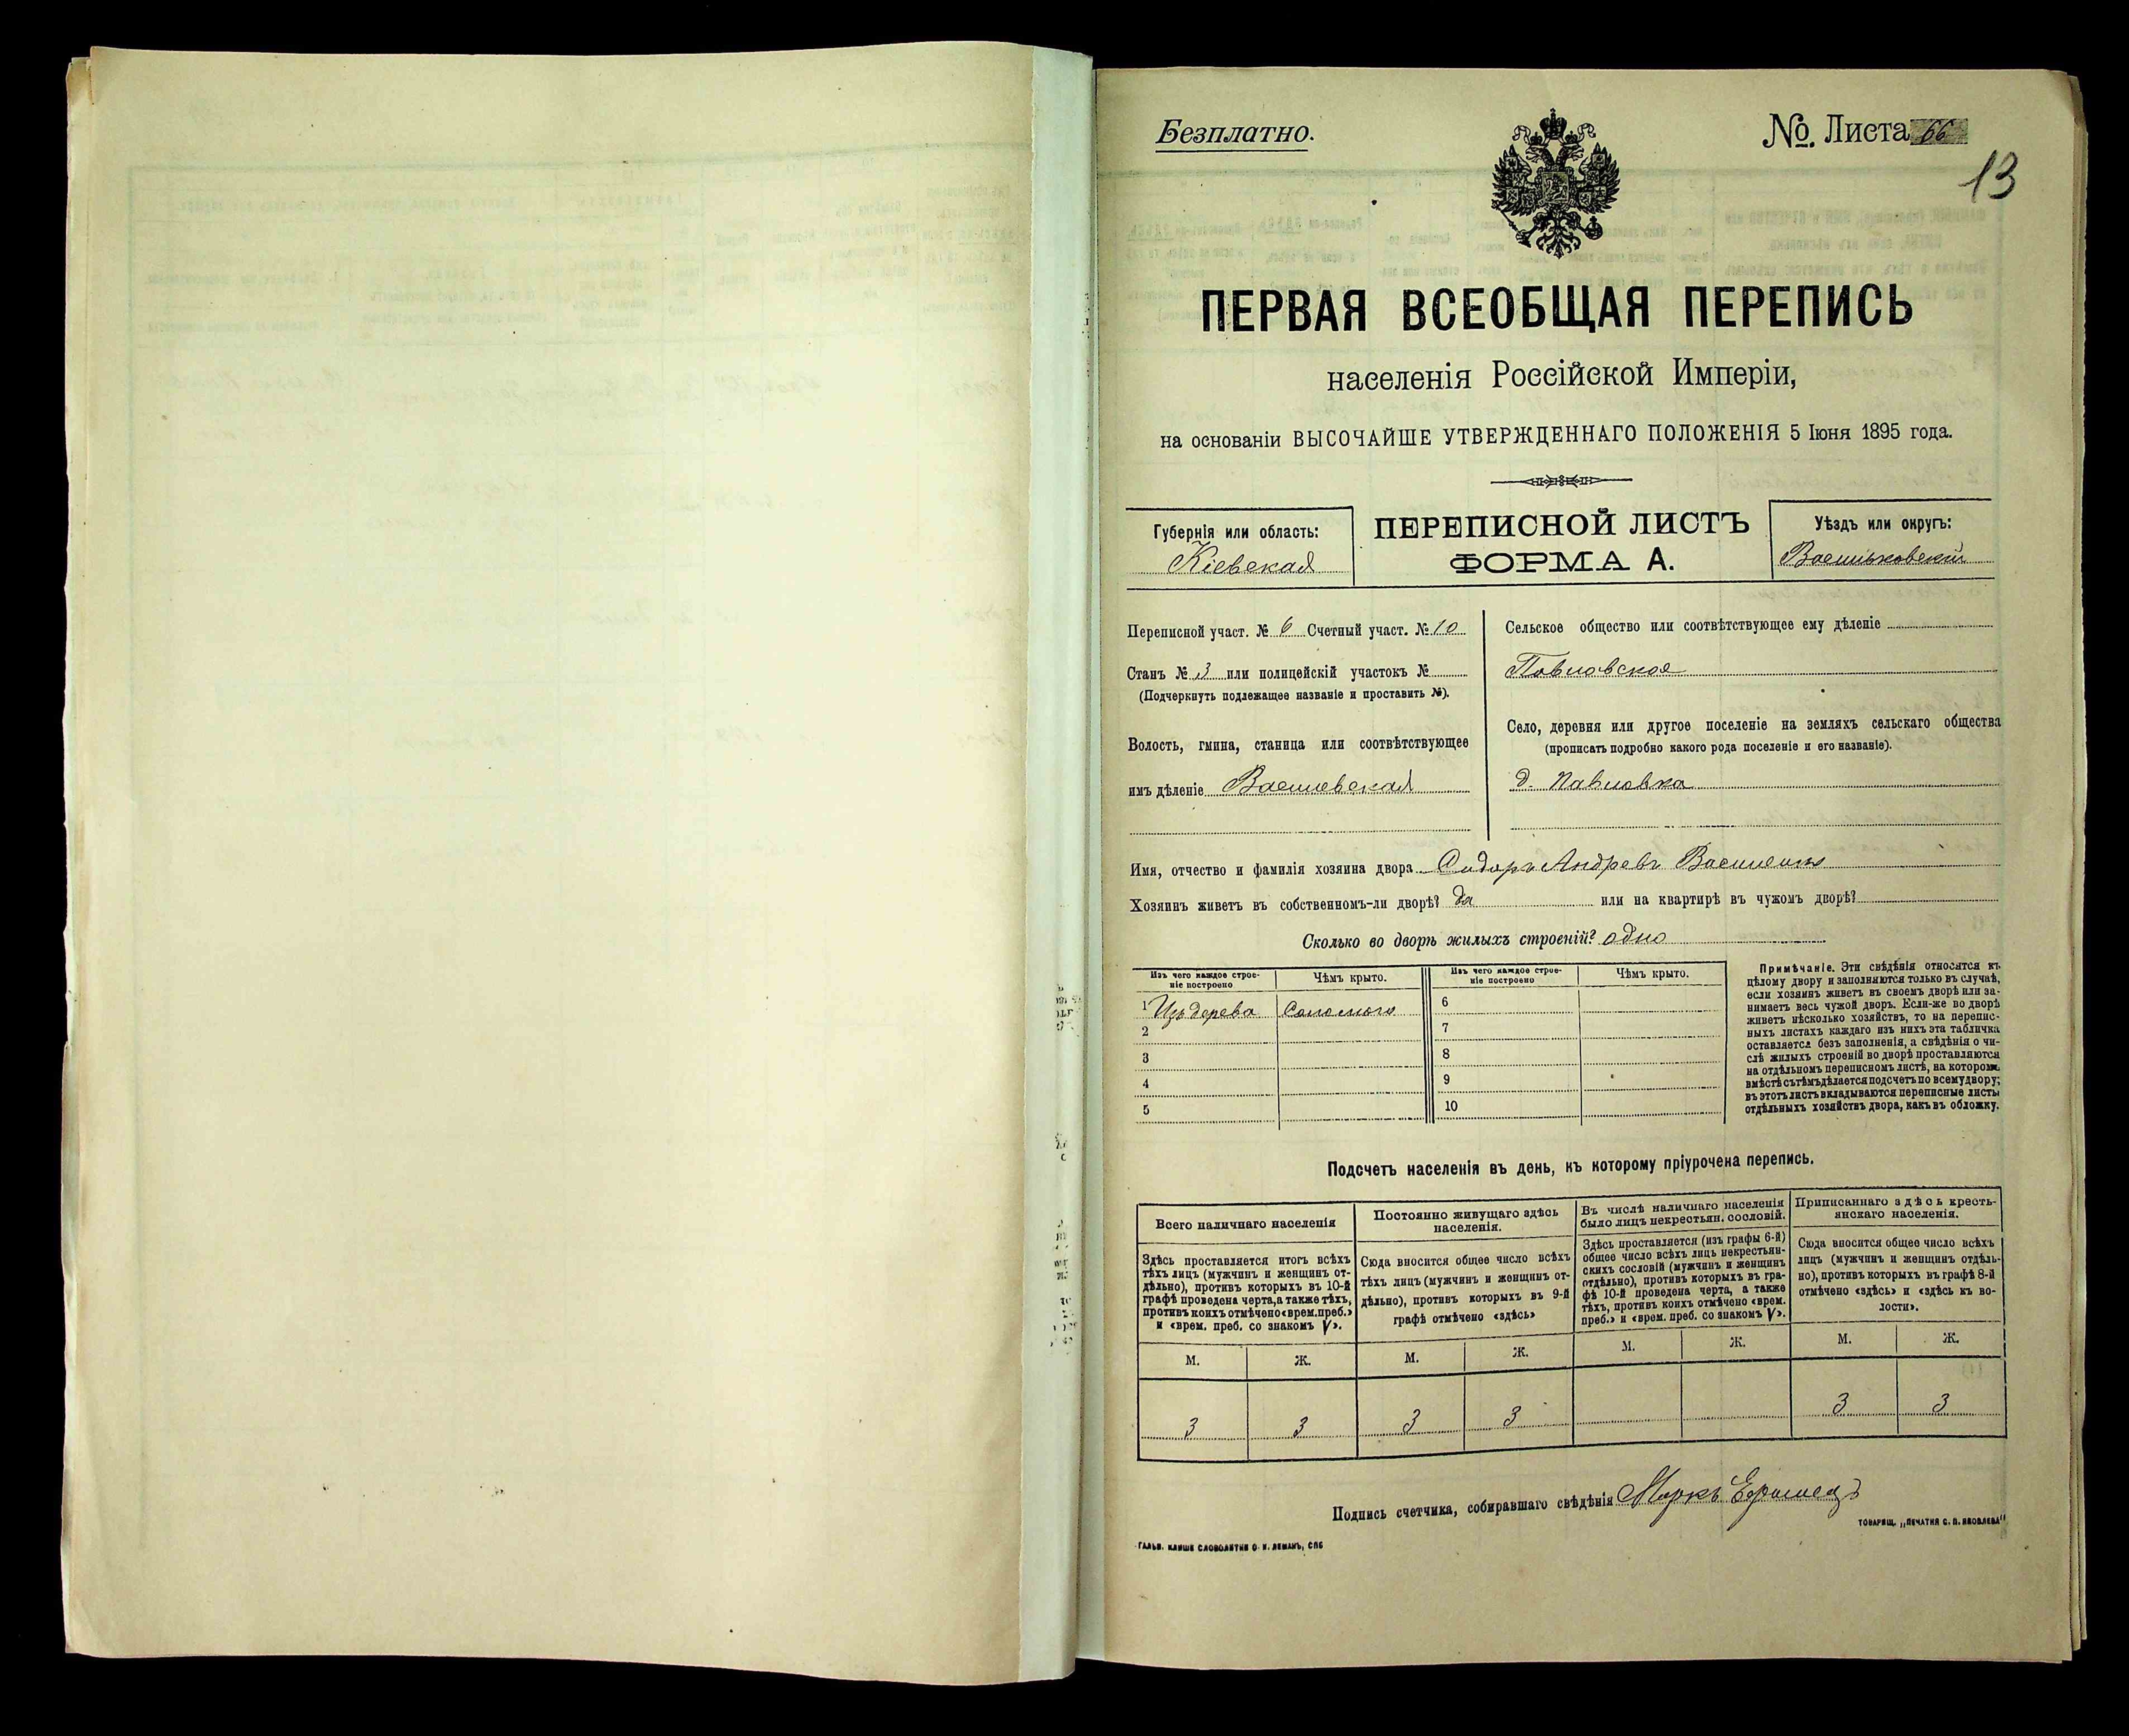 Безплатно.
№. Листа 66
13
ПЕРВАЯ ВСЕОБЩАЯ ПЕРЕПИСЬ
населенія Россійской Имперіи,
на основаніи ВЫСОЧАЙШЕ УТВЕРЖДЕННАГО ПОЛОЖЕНІЯ 5 Іюня 1895 года.
Губернія или область:
Кіевская
ПЕРЕПИСНОЙ ЛИСТЪ
ФОРМА А.
Уѣздъ или округъ:
Васильковскій
Переписной участ. № 6 Счетный участ. № 10
Станъ № 3 или полицейскій участокъ №
(Подчеркнуть подлежащее названіе и проставить №).
Волость, гмина, станица или соотвѣтствующее
имъ дѣленіе
Сельское общество или соотвѣтствующее ему дѣленіе
Павловское
Село, деревня или другое поселеніе на земляхъ сельскаго общества
(прописать подробно какого рода поселеніе и его названіе).
д. Павловка
Имя, отчество и фамилія хозяина двора Сидоръ Андреевъ
Хозяинъ живетъ въ собственномъ-ли дворѣ? да или на квартирѣ въ чужомъ дворѣ?
Сколько во дворѣ жилыхъ строеній? одно
Изъ чего каждое строе-
ніе построено
Чѣмъ крыто.
Изъ чего каждое строе-
ніе построено
Чѣмъ крыто.
1 Изъ дерева Соломою 6
2 7
3 8
4 9
5 10
Примѣчаніе. Эти свѣдѣнія относятся къ
цѣлому двору и заполняются только въ случаѣ,
если хозяинъ живетъ въ своемъ дворѣ или за-
нимаетъ весь чужой дворъ. Если-же во дворѣ
живетъ нѣсколько хозяйствъ, то на перепис-
ныхъ листахъ каждаго изъ нихъ эта табличка
оставляется безъ заполненія, а свѣдѣнія о чи-
слѣ жилыхъ строеній во дворѣ проставляются
на отдѣльномъ переписномъ листѣ, на которомъ
вмѣстѣ съ тѣмъ дѣлается подсчетъ по всему двору;
въ этотъ листъ вкладываются переписные листы
отдѣльныхъ хозяйствъ двора, какъ въ обложку.
Подсчетъ населенія въ день, къ которому пріурочена перепись.
Всего наличнаго населенія
Здѣсь проставляется итогъ всѣхъ
тѣхъ лицъ (мужчинъ и женщинъ от-
дѣльно), противъ которыхъ въ 10-й
графѣ проведена черта, а также тѣхъ,
противъ коихъ отмѣчено «врем. преб.»
и «врем. преб. со знакомъ V».
Постоянно живущаго здѣсь
населенія.
Сюда вносится общее число всѣхъ
тѣхъ лицъ (мужчинъ и женщинъ от-
дѣльно), противъ которыхъ въ 9-й
графѣ отмѣчено «здѣсь»
Въ числѣ наличнаго населенія
было лицъ некрестьян. сословій.
Здѣсь проставляется (изъ графы 6-й)
общее число всѣхъ лицъ некрестьян-
скихъ сословій (мужчинъ и женщинъ
отдѣльно), противъ которыхъ въ гра-
фѣ 10-й проведена черта, а также
тѣхъ, противъ коихъ отмѣчено «врем.
преб.» и «врем. преб. со знакомъ V».
Приписаннаго здѣсь кресть-
янскаго населенія.
Сюда вносится общее число всѣхъ
лицъ (мужчинъ и женщинъ отдѣль-
но), противъ которыхъ въ графѣ 8-й
отмѣчено «здѣсь» и «здѣсь къ во-
лости».
М. Ж. М. Ж. М. Ж. М. Ж.
3 3 3 3 3 3
Подпись счетчика, собиравшаго свѣдѣнія Маркъ
ТОВАРИЩ. „ПЕЧАТНЯ С. П. ЯКОВЛЕВА"
ГАЛЬВ. КЛИШЕ СЛОВОЛИТНИ О. И. ЛЕМАНЪ, СПБ